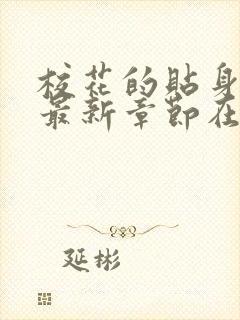 校花的貼身
最新章節在
延彬